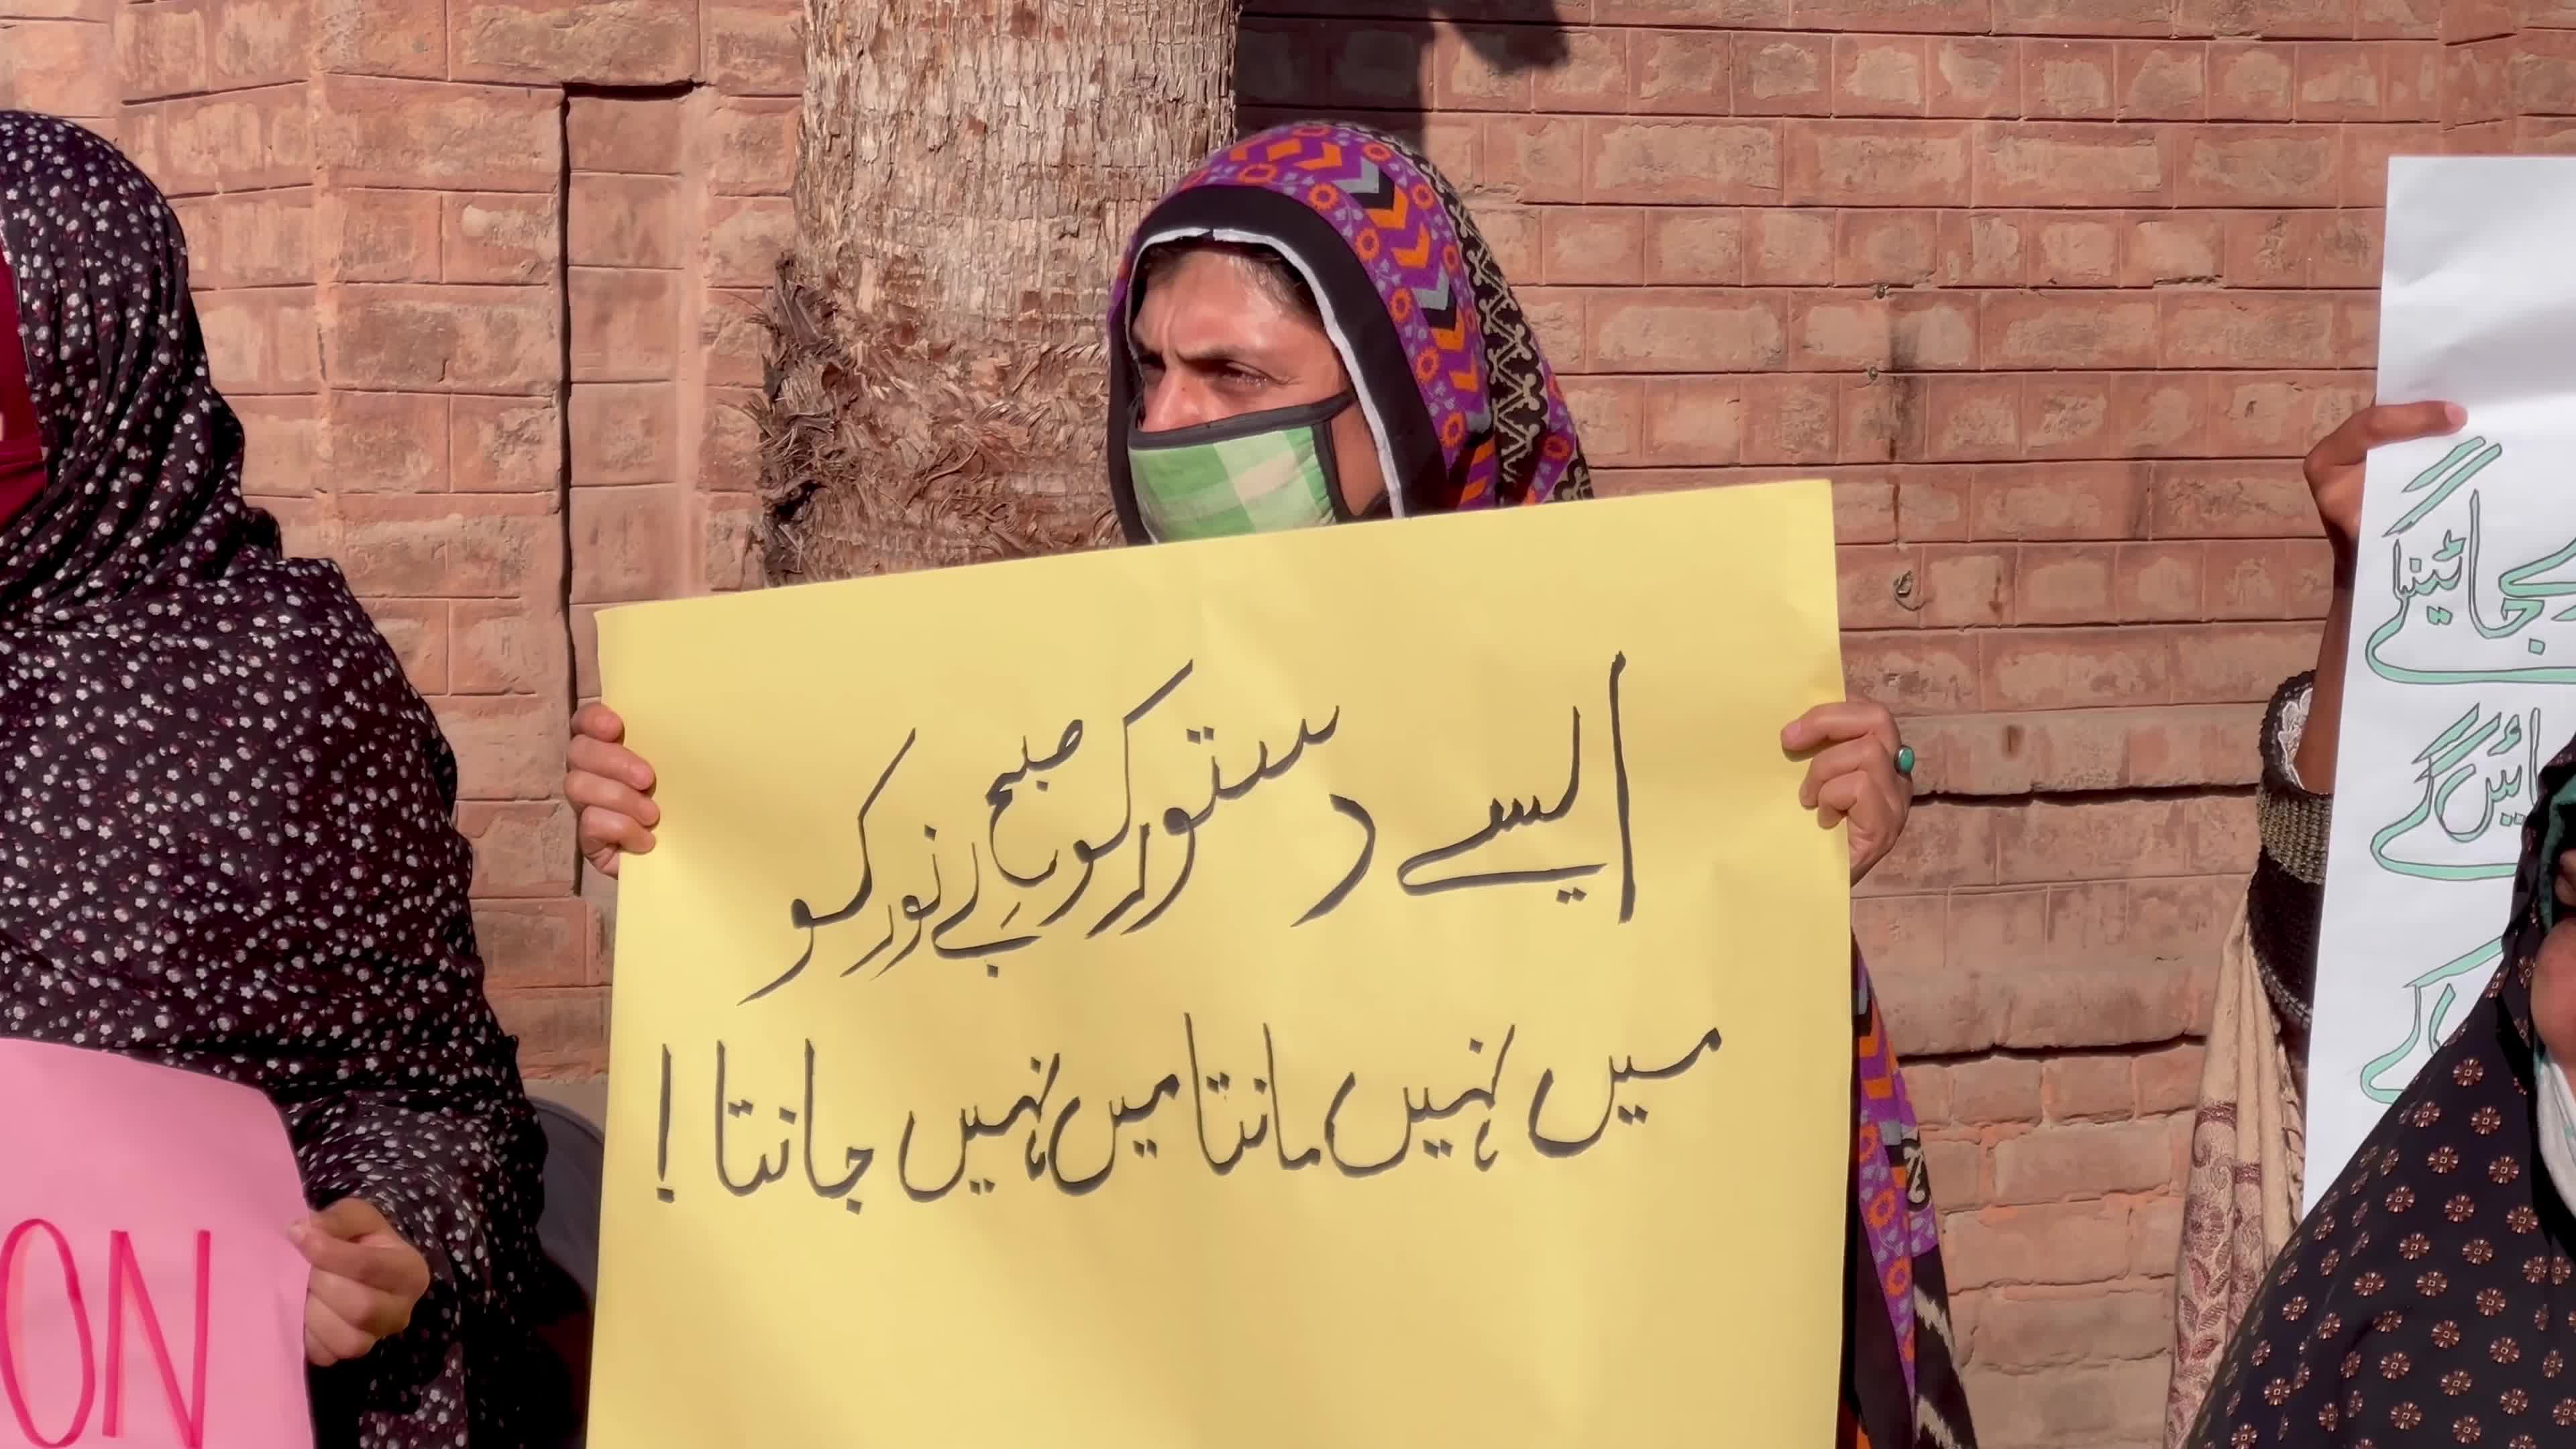 ایسے دستور کو صبحِ بے نور کو
میں نہیں مانتا میں نہیں جانتا!
ON